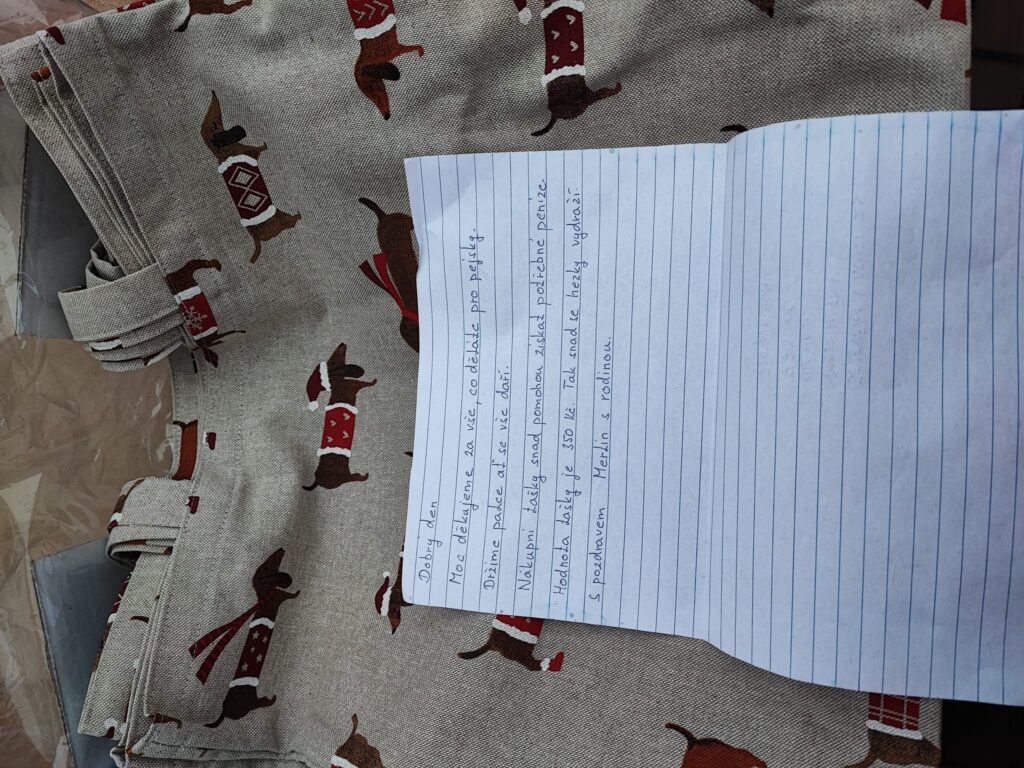 Dobrý den
Moc děkujeme za vše, co děláte pro pejsky.
Držíme palce ať se vše daří.
Nákupní tašky snad pomohou získat potřebné peníze.
Hodnota tašky je 350 Kč. Tak snad se hezky vydraží.
s pozdravem Merlin s rodinou.